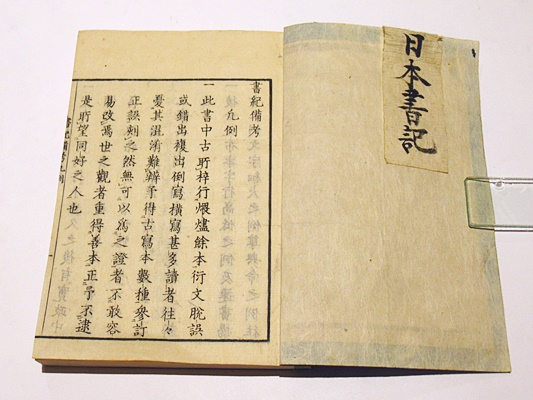 日本書記
書紀備考
凡例
一此書中古所梓行煨燼餘本衍文脱誤
或錯出複出倒寫横寫甚多讀者往々
憂其混淆難辨予得古寫本數種參訂
正誤刻之然無可以為之證者不敢容
易改焉世之觀者重得善本正予不逮
是所望同好之人也